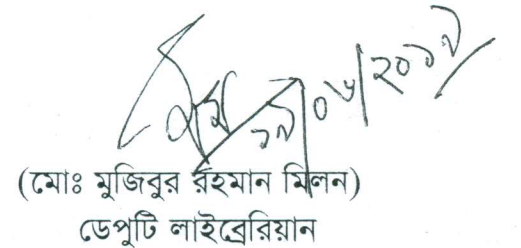 ১৯/০৬/২০১৭
(মোঃ মুজিবুর রহমান মিলন)
ডেপুটি লাইব্রেরিয়ান